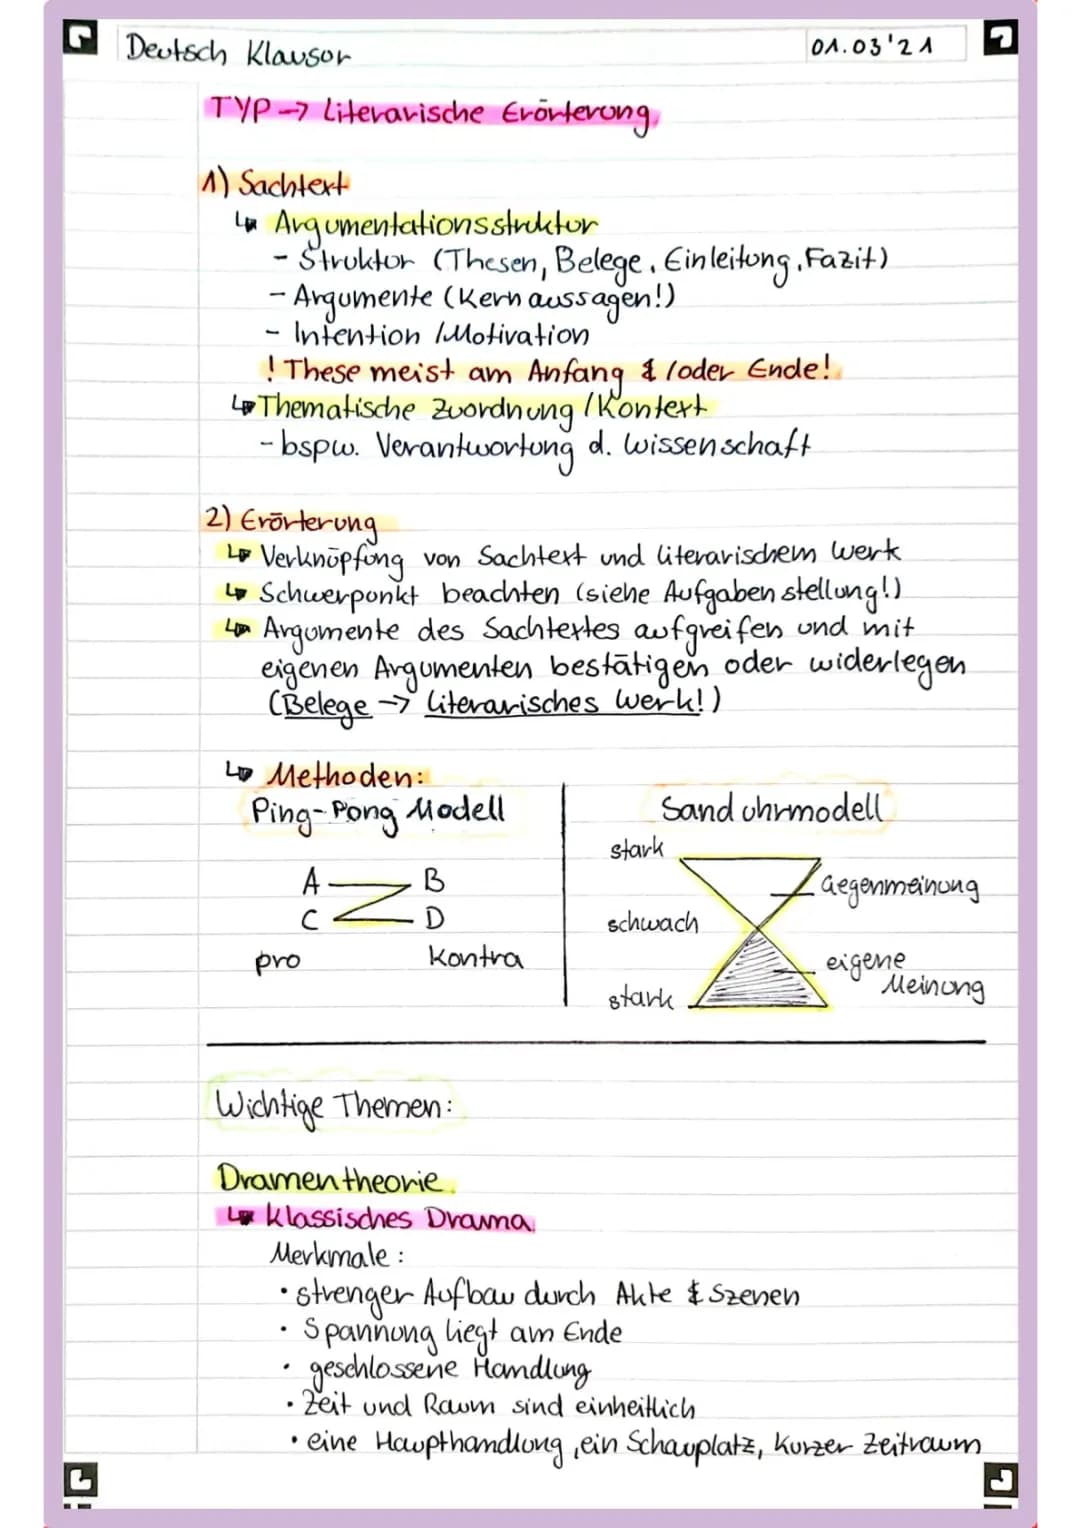 Deutsch Klausur
01.03'21
TYP → Literarische Erörterung
1) Sachtext
↳ Argumentationsstruktur
- Struktur (Thesen, Belege, Einleitung, Fazit)
- Argumente (Kernaussagen!)
- Intention / Motivation
! These meist am Anfang & / oder Ende!
↳ Thematische Zuordnung / Kontext
- bspw. Verantwortung d. Wissenschaft
2) Erörterung
↳ Verknüpfung von Sachtext und literarischem Werk
↳ Schwerpunkt beachten (siehe Aufgabenstellung!)
↳ Argumente des Sachtextes aufgreifen und mit
eigenen Argumenten bestätigen oder widerlegen
(Belege → literarisches Werk!)
↳ Methoden:
Ping-Pong Modell
A B
C D
pro kontra
Sanduhrmodell
stark
Gegenmeinung
schwach
eigene
Meinung
stark
Wichtige Themen:
Dramentheorie
↳ Klassisches Drama
Merkmale:
• strenger Aufbau durch Akte & Szenen
• Spannung liegt am Ende
• geschlossene Handlung
• Zeit und Raum sind einheitlich
• eine Haupthandlung, ein Schauplatz, kurzer Zeitraum